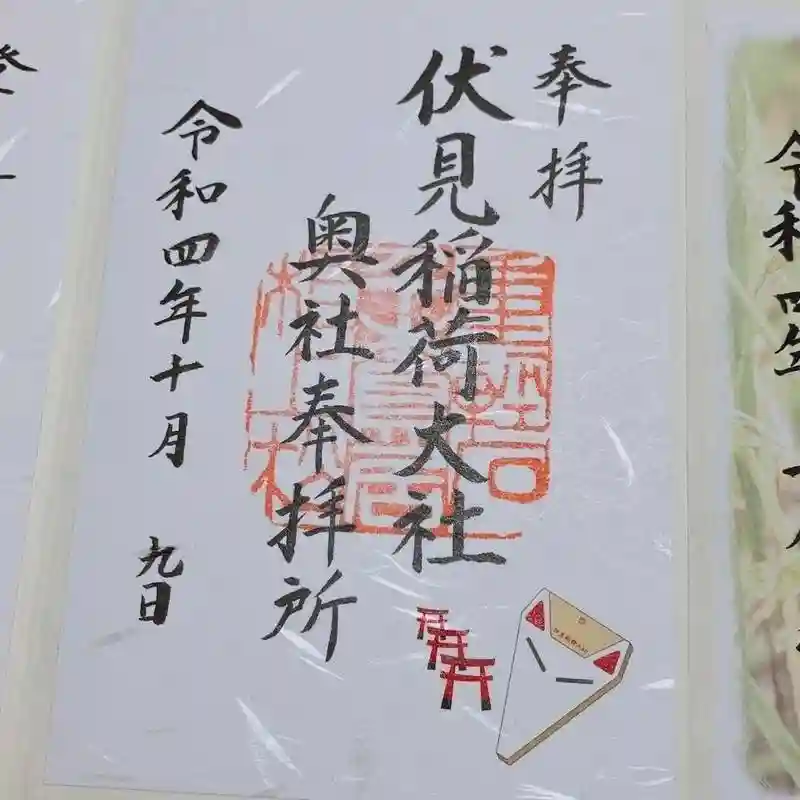 奉拝
伏見稲荷大社
奥社奉拝所
令和四年十月九日
令和四年